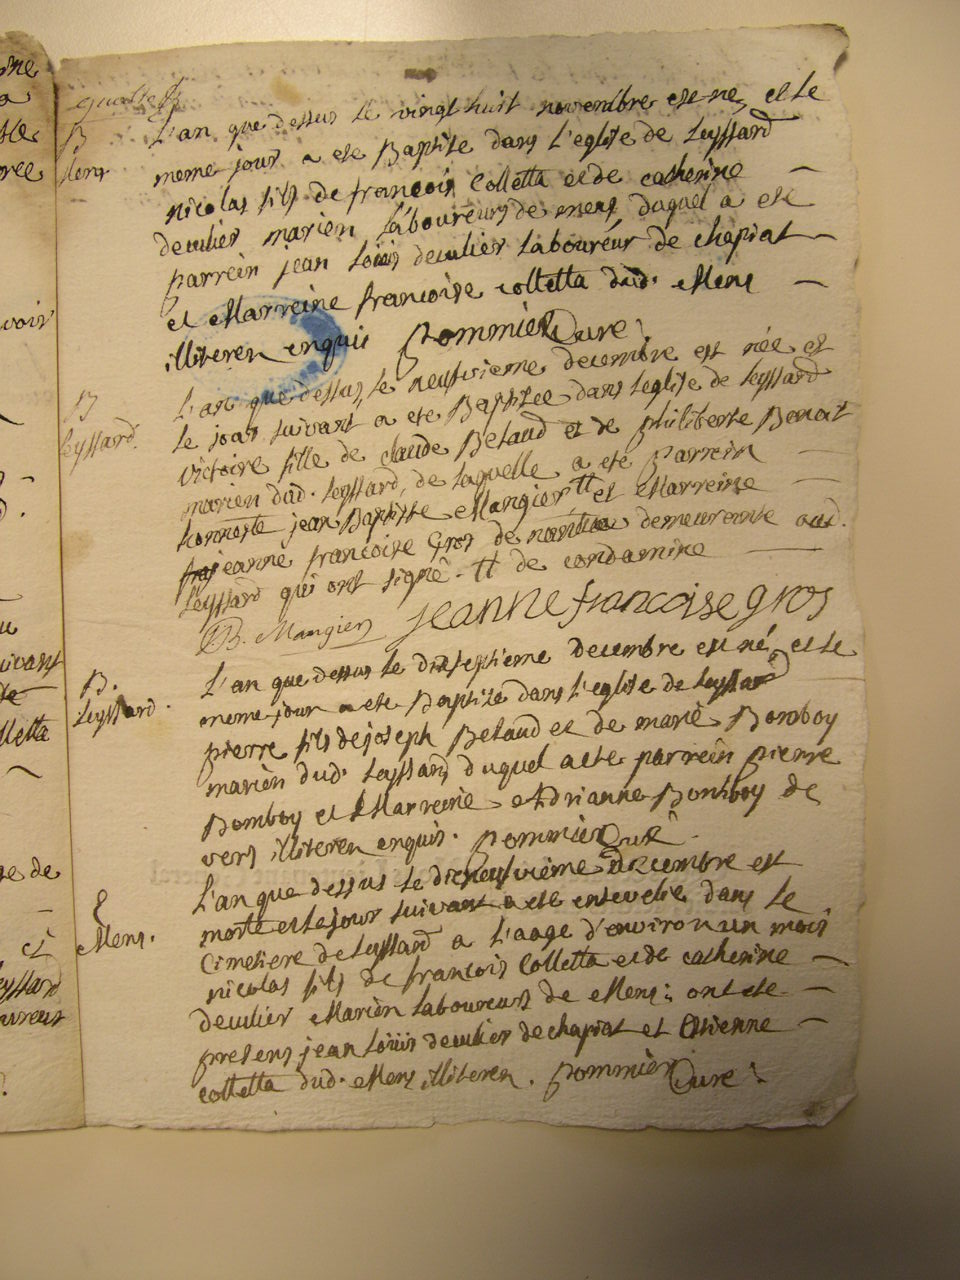 B
Mens
L'an que dessus le vingt huit novembre est ne, et le
meme jour a ete Baptise dans l'eglise de Leyssard
nicolas fils de francois Colletta et de catherine
deculier marien Laboureurs de mens duquel a ete
parrein jean Loüis deculier Laboureur de chapiat
et Marreine francoise colletta dud. Mens
illiteren enquis Pommier Cure
B
Leyssard
L'an que dessus, le neufvieme decembre est née et
le jour suivant a ete Baptizée dans l'eglise de Leyssard
victoire fille de claude Betaud et de philiberte Benoit
marien dud. Leyssard, de laquelle a ete Parrein
honneste jean Baptiste Mangier tt et Marreine
jeanne francoise Gros de demeurente aud.
Leyssard qui ont signé. tt de condamine
JB. Mangier jeanne francoise gros
B.
Leyssard.
L'an que dessus le dixseptieme decembre est né, et le
meme jour a ete Baptizé dans l'eglise de Leyssard
pierre fils de joseph Betaud et de marie Bomboy
marien dud. Leyssard duquel a ete parrein pierre
Bomboy et Marreine Adrianne Bomboy de
vers illiteren enquis. Pommier Curé
E
Mens.
L'an que dessus le dixneufvieme decembre est
morte et le jour suivant a ete ensevelie dans le
Cimetiere de Leyssard a l'aage d'environ un mois
nicolas fils de francois Colletta et de catherine
deculier Marien Laboureurs de Mens; ont ete
presens jean Loüis deculier de chapiat et Etienne
colletta dud. Mens illiteren. Pommier Cure